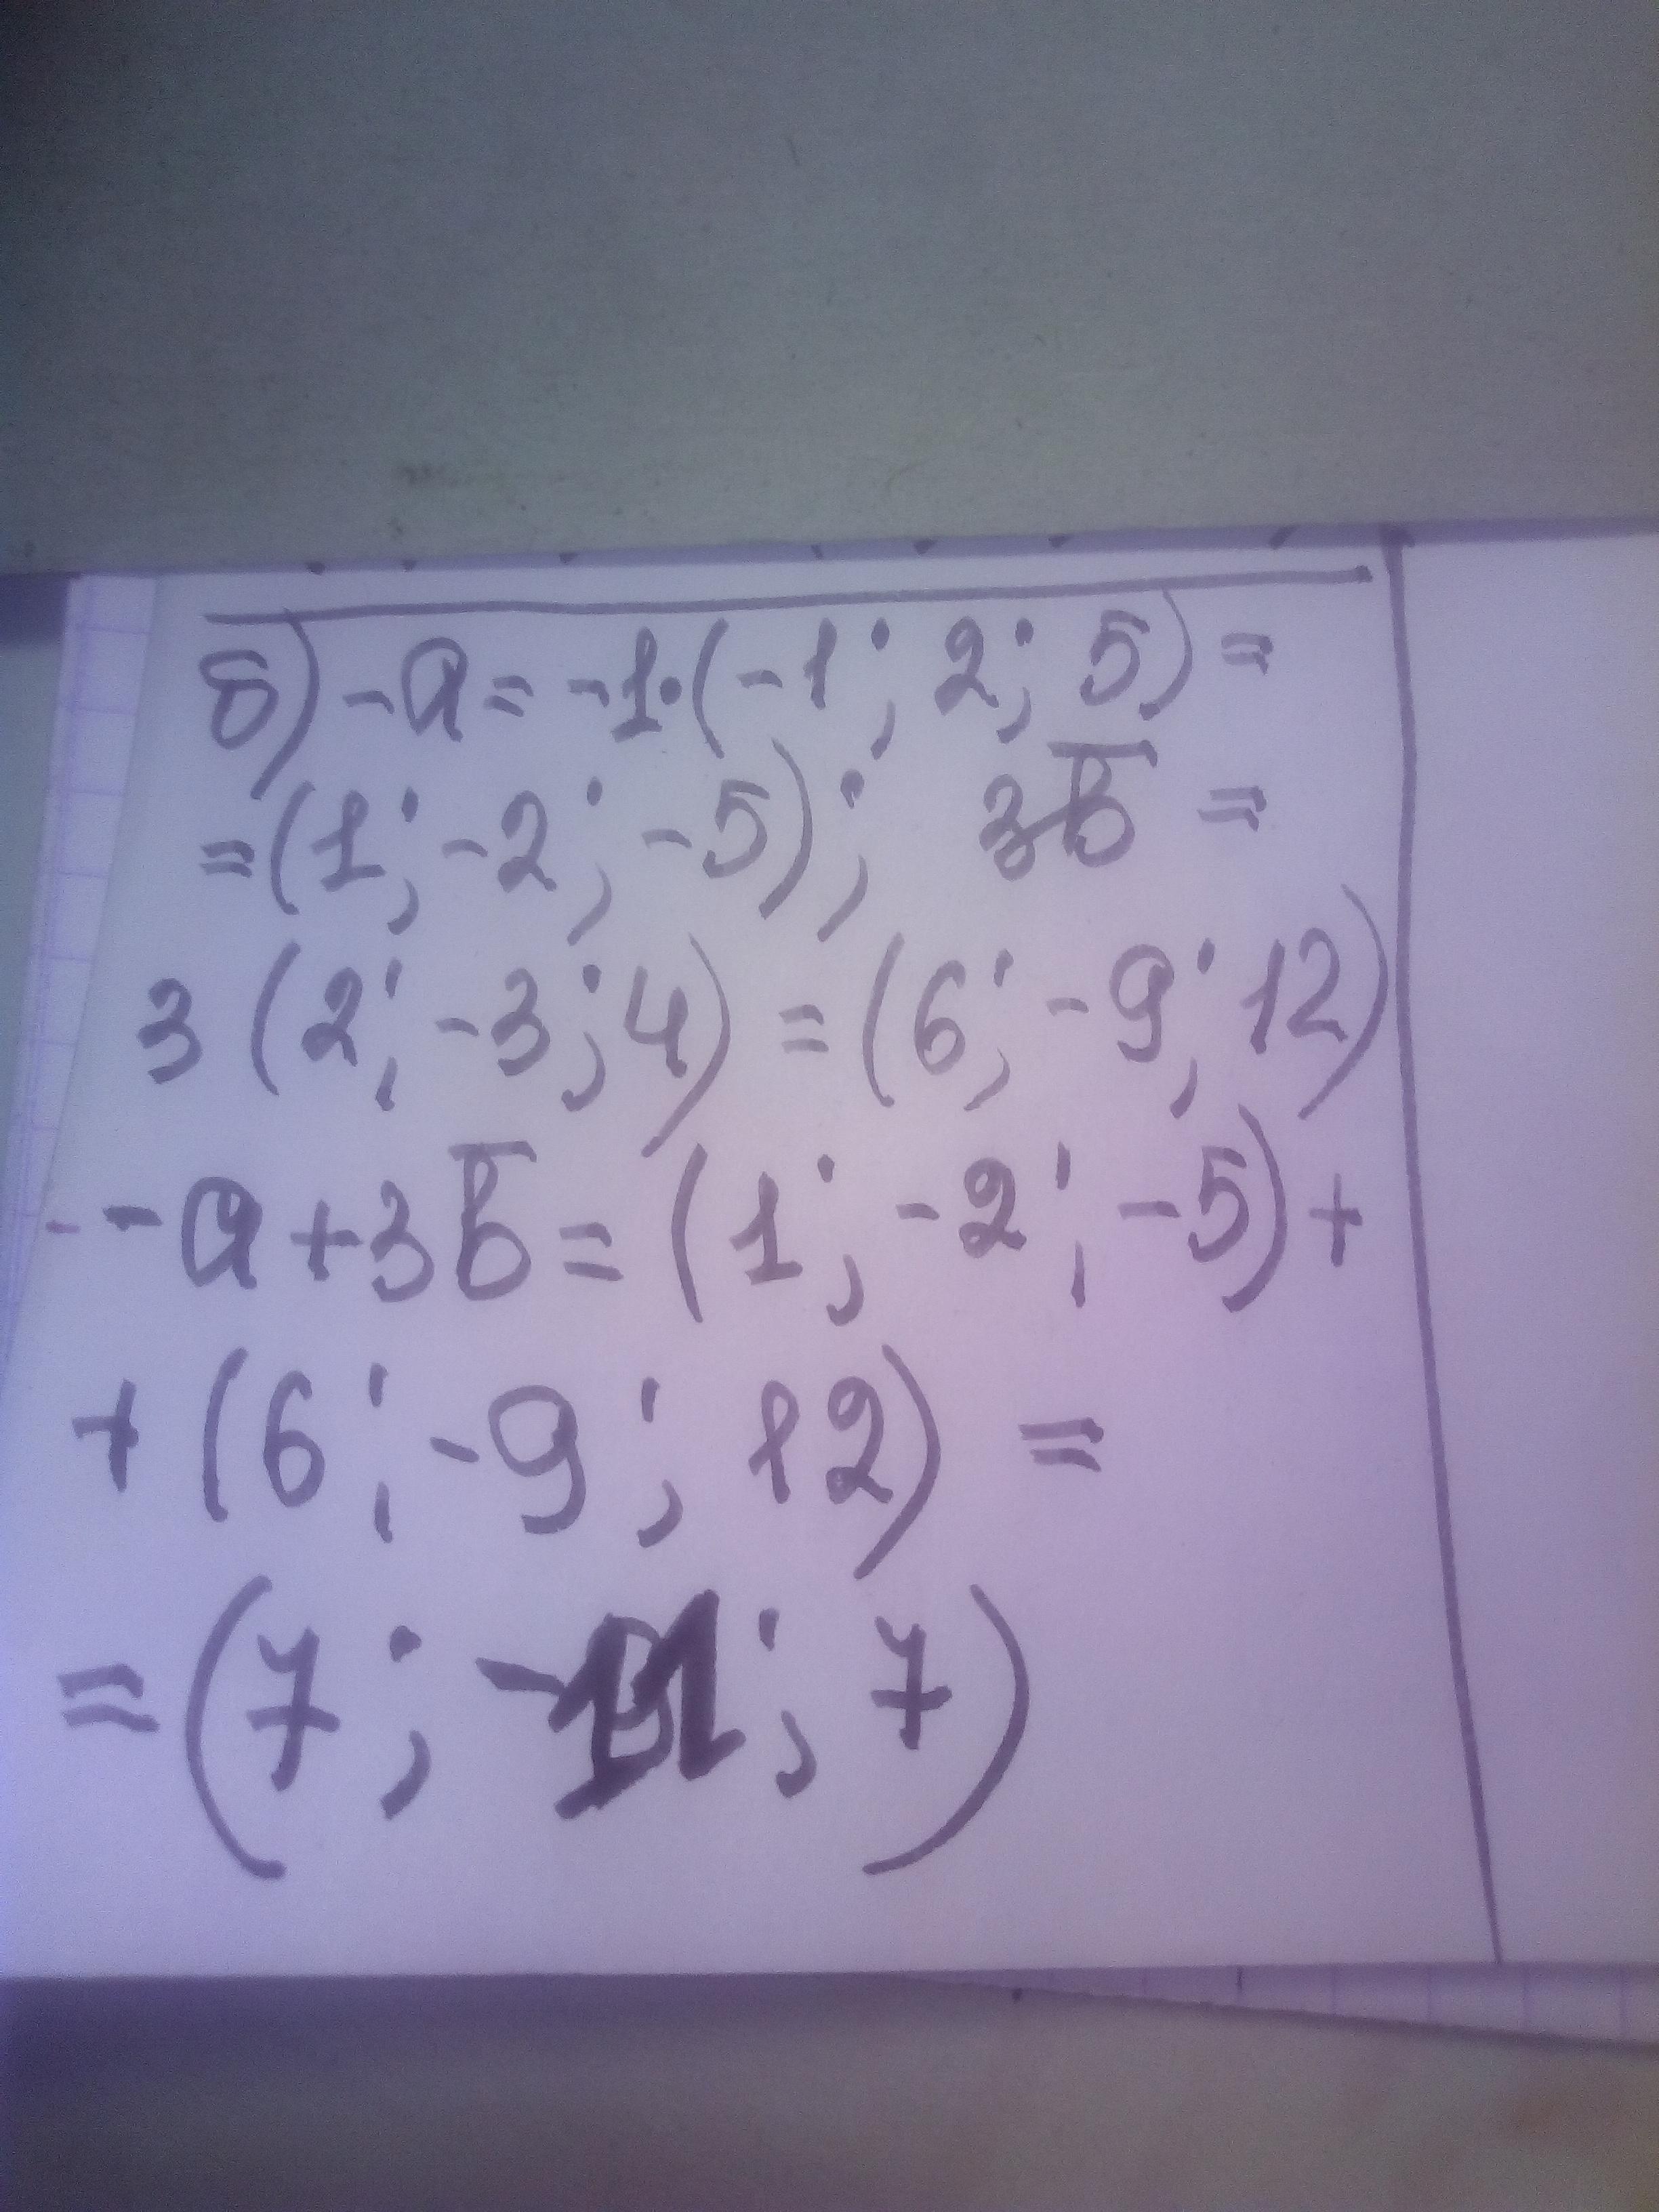 б) -a = -1·(-1; 2; 5) =
= (1; -2; -5); 3b̅ =
3 (2; -3; 4) = (6; -9; 12)
- -a + 3b̅ = (1; -2; -5) +
+ (6; -9; 12) =
= (7; -11; 7)